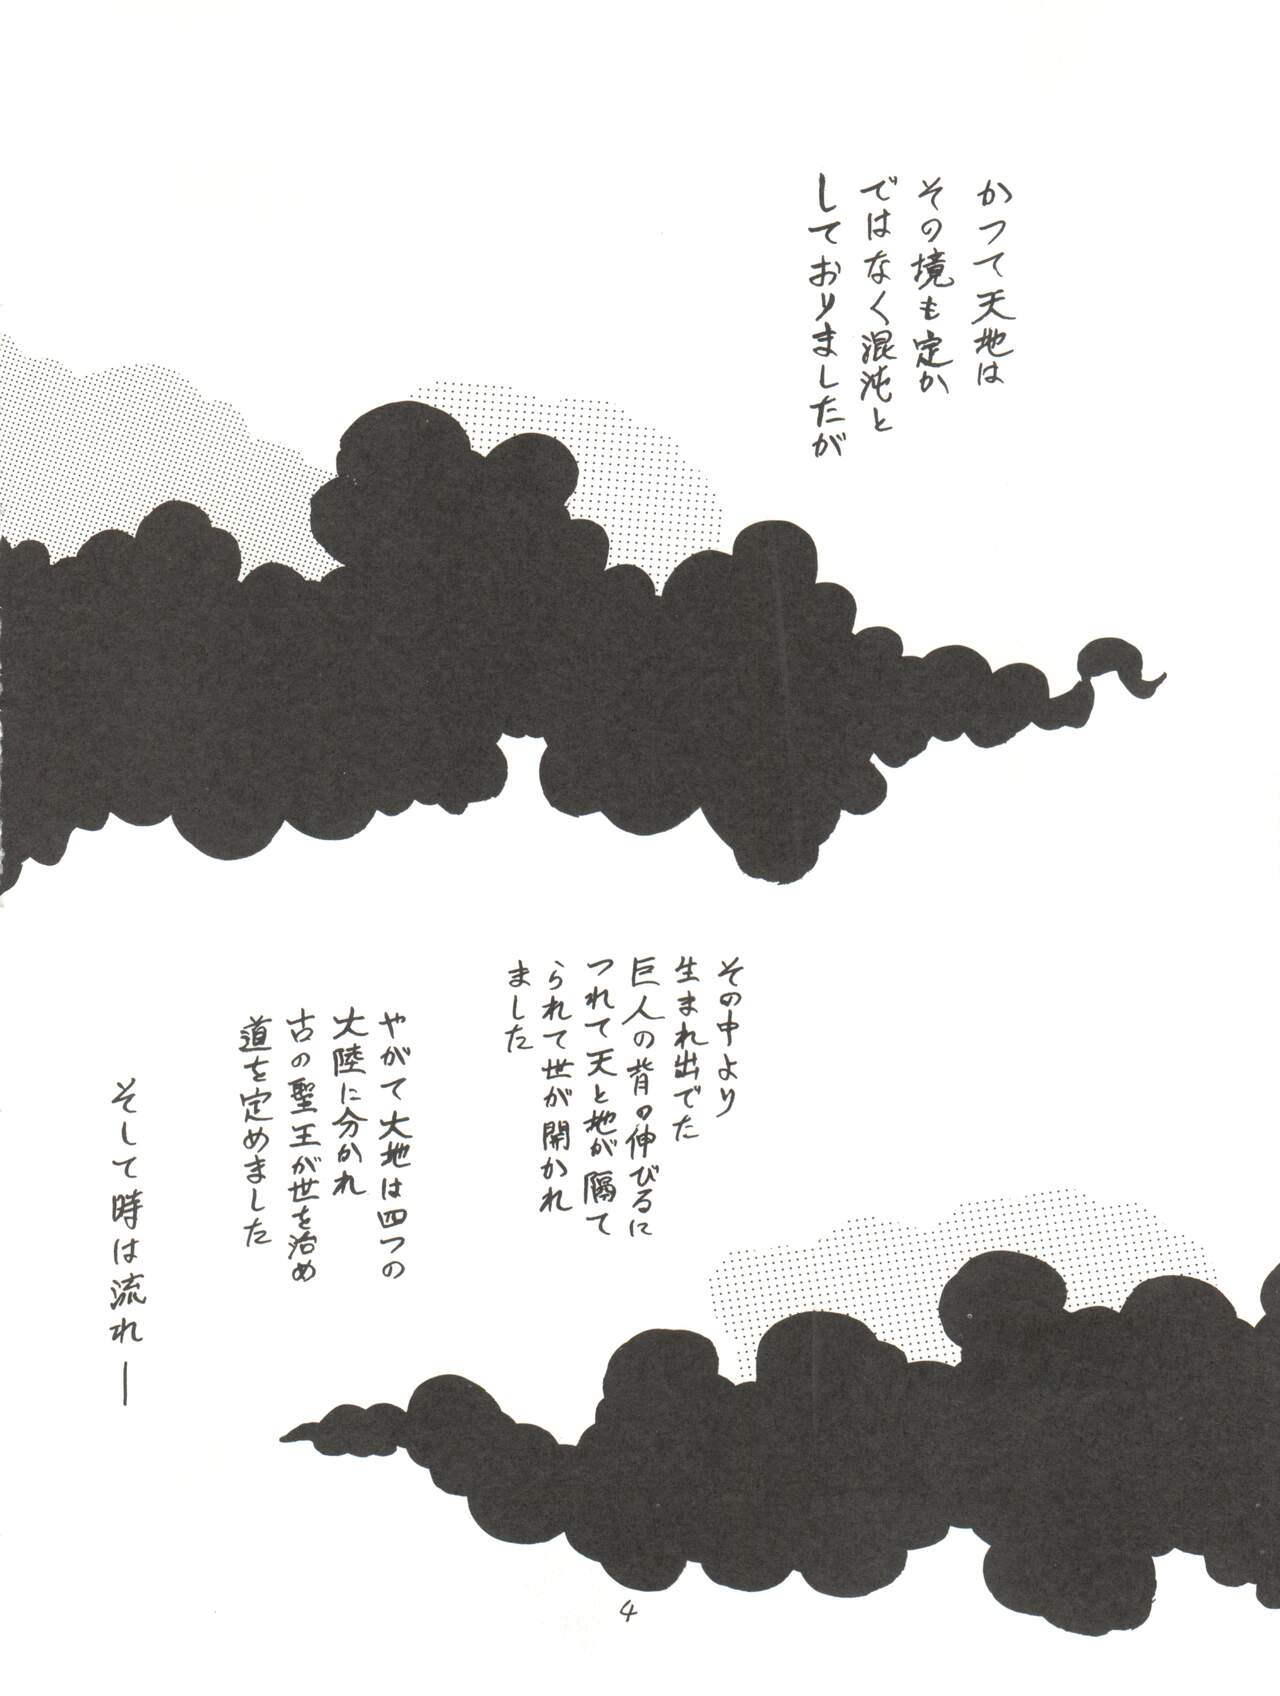 かつて天地は
その境も定か
ではなく混沌と
しておりましたが
その中より
生まれ出でた
巨人の背の伸びるに
つれて天と地が隔て
られて世が開かれ
ました
やがて大地は四つの
大陸に分かれ
古の聖王が世を治め
道を定めました
そして時は流れ―
4